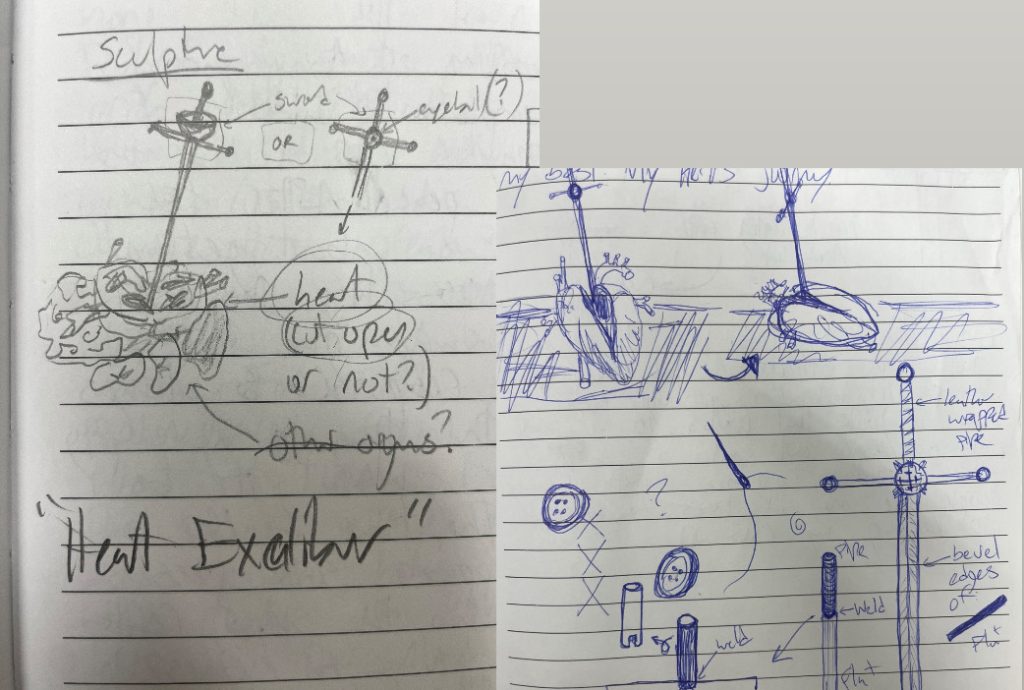 Sculptre
sword
eyeball(?)
OR
heart
(cut open
or not?)
other organs?
"Heart Excalibur"
my best. My
?
leather
wrapped
pipe
bevel
edges
of
pipe
weld
weld